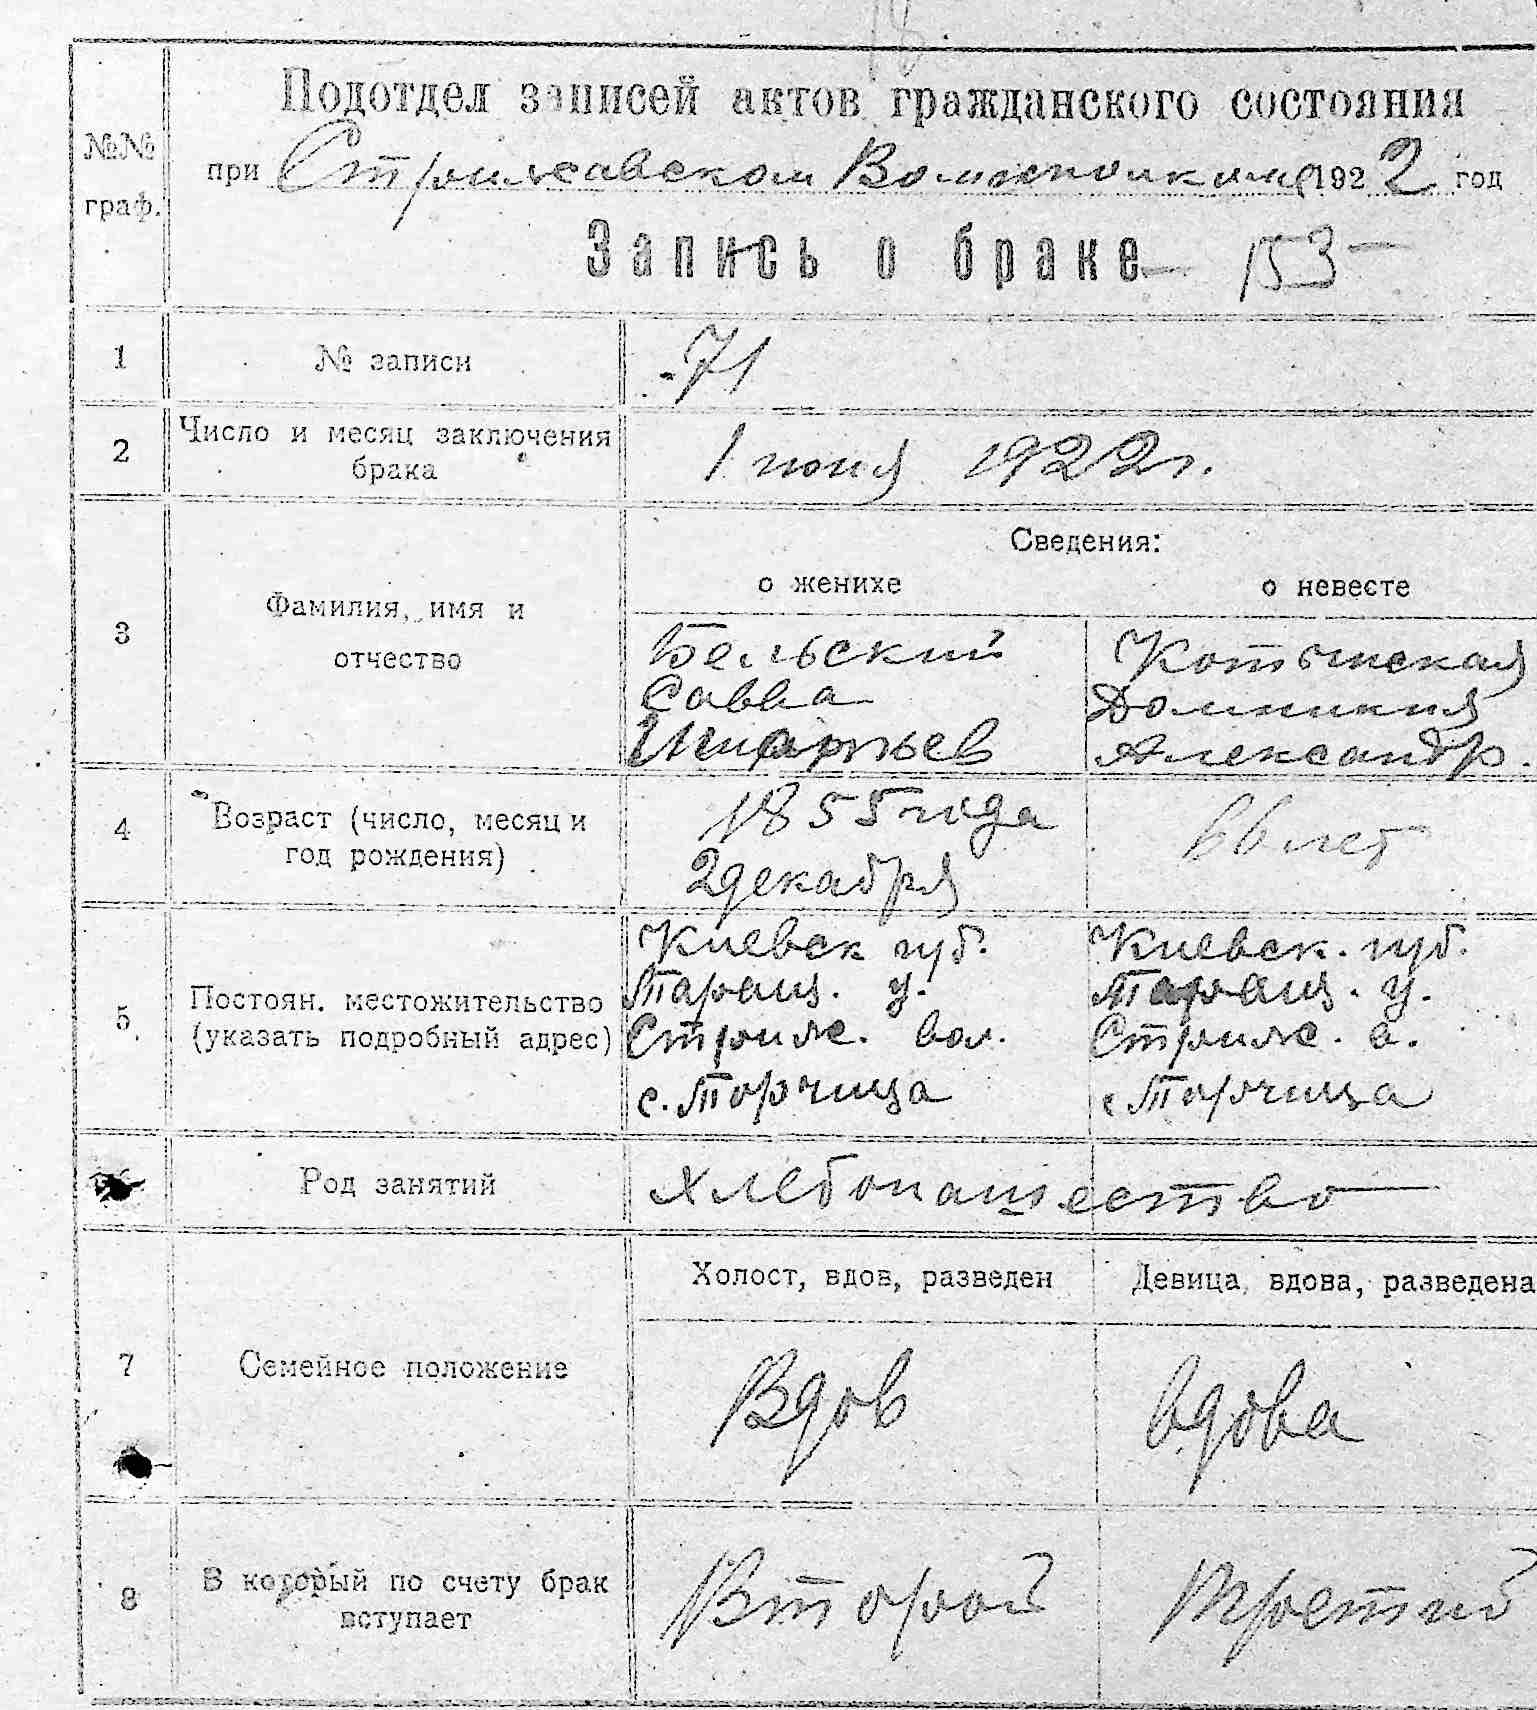 Подотдел записей актов гражданского состояния
№№ граф.
при Стрижавском Волисполкоме 1922 год
Запись о браке - 153 -
1 № записи 71
2 Число и месяц заключения брака 1 июня 1922 г.
Сведения:
о женихе о невесте
3 Фамилия, имя и отчество
Бельский
Савва
Котынская
Домникия
Александр.
4 Возраст (число, месяц и год рождения)
1855 года
2 декабря
66 лет
5 Постоян. местожительство (указать подробный адрес)
Киевск губ.
Таращ. у.
Стриж. вол.
с. Торчица
Киевск. губ.
Таращ. у.
Стриж. в.
с Торчица
6 Род занятий хлебопашество
Холост, вдов, разведен Девица, вдова, разведена
7 Семейное положение Вдов вдова
8 В который по счету брак вступает Второй третий